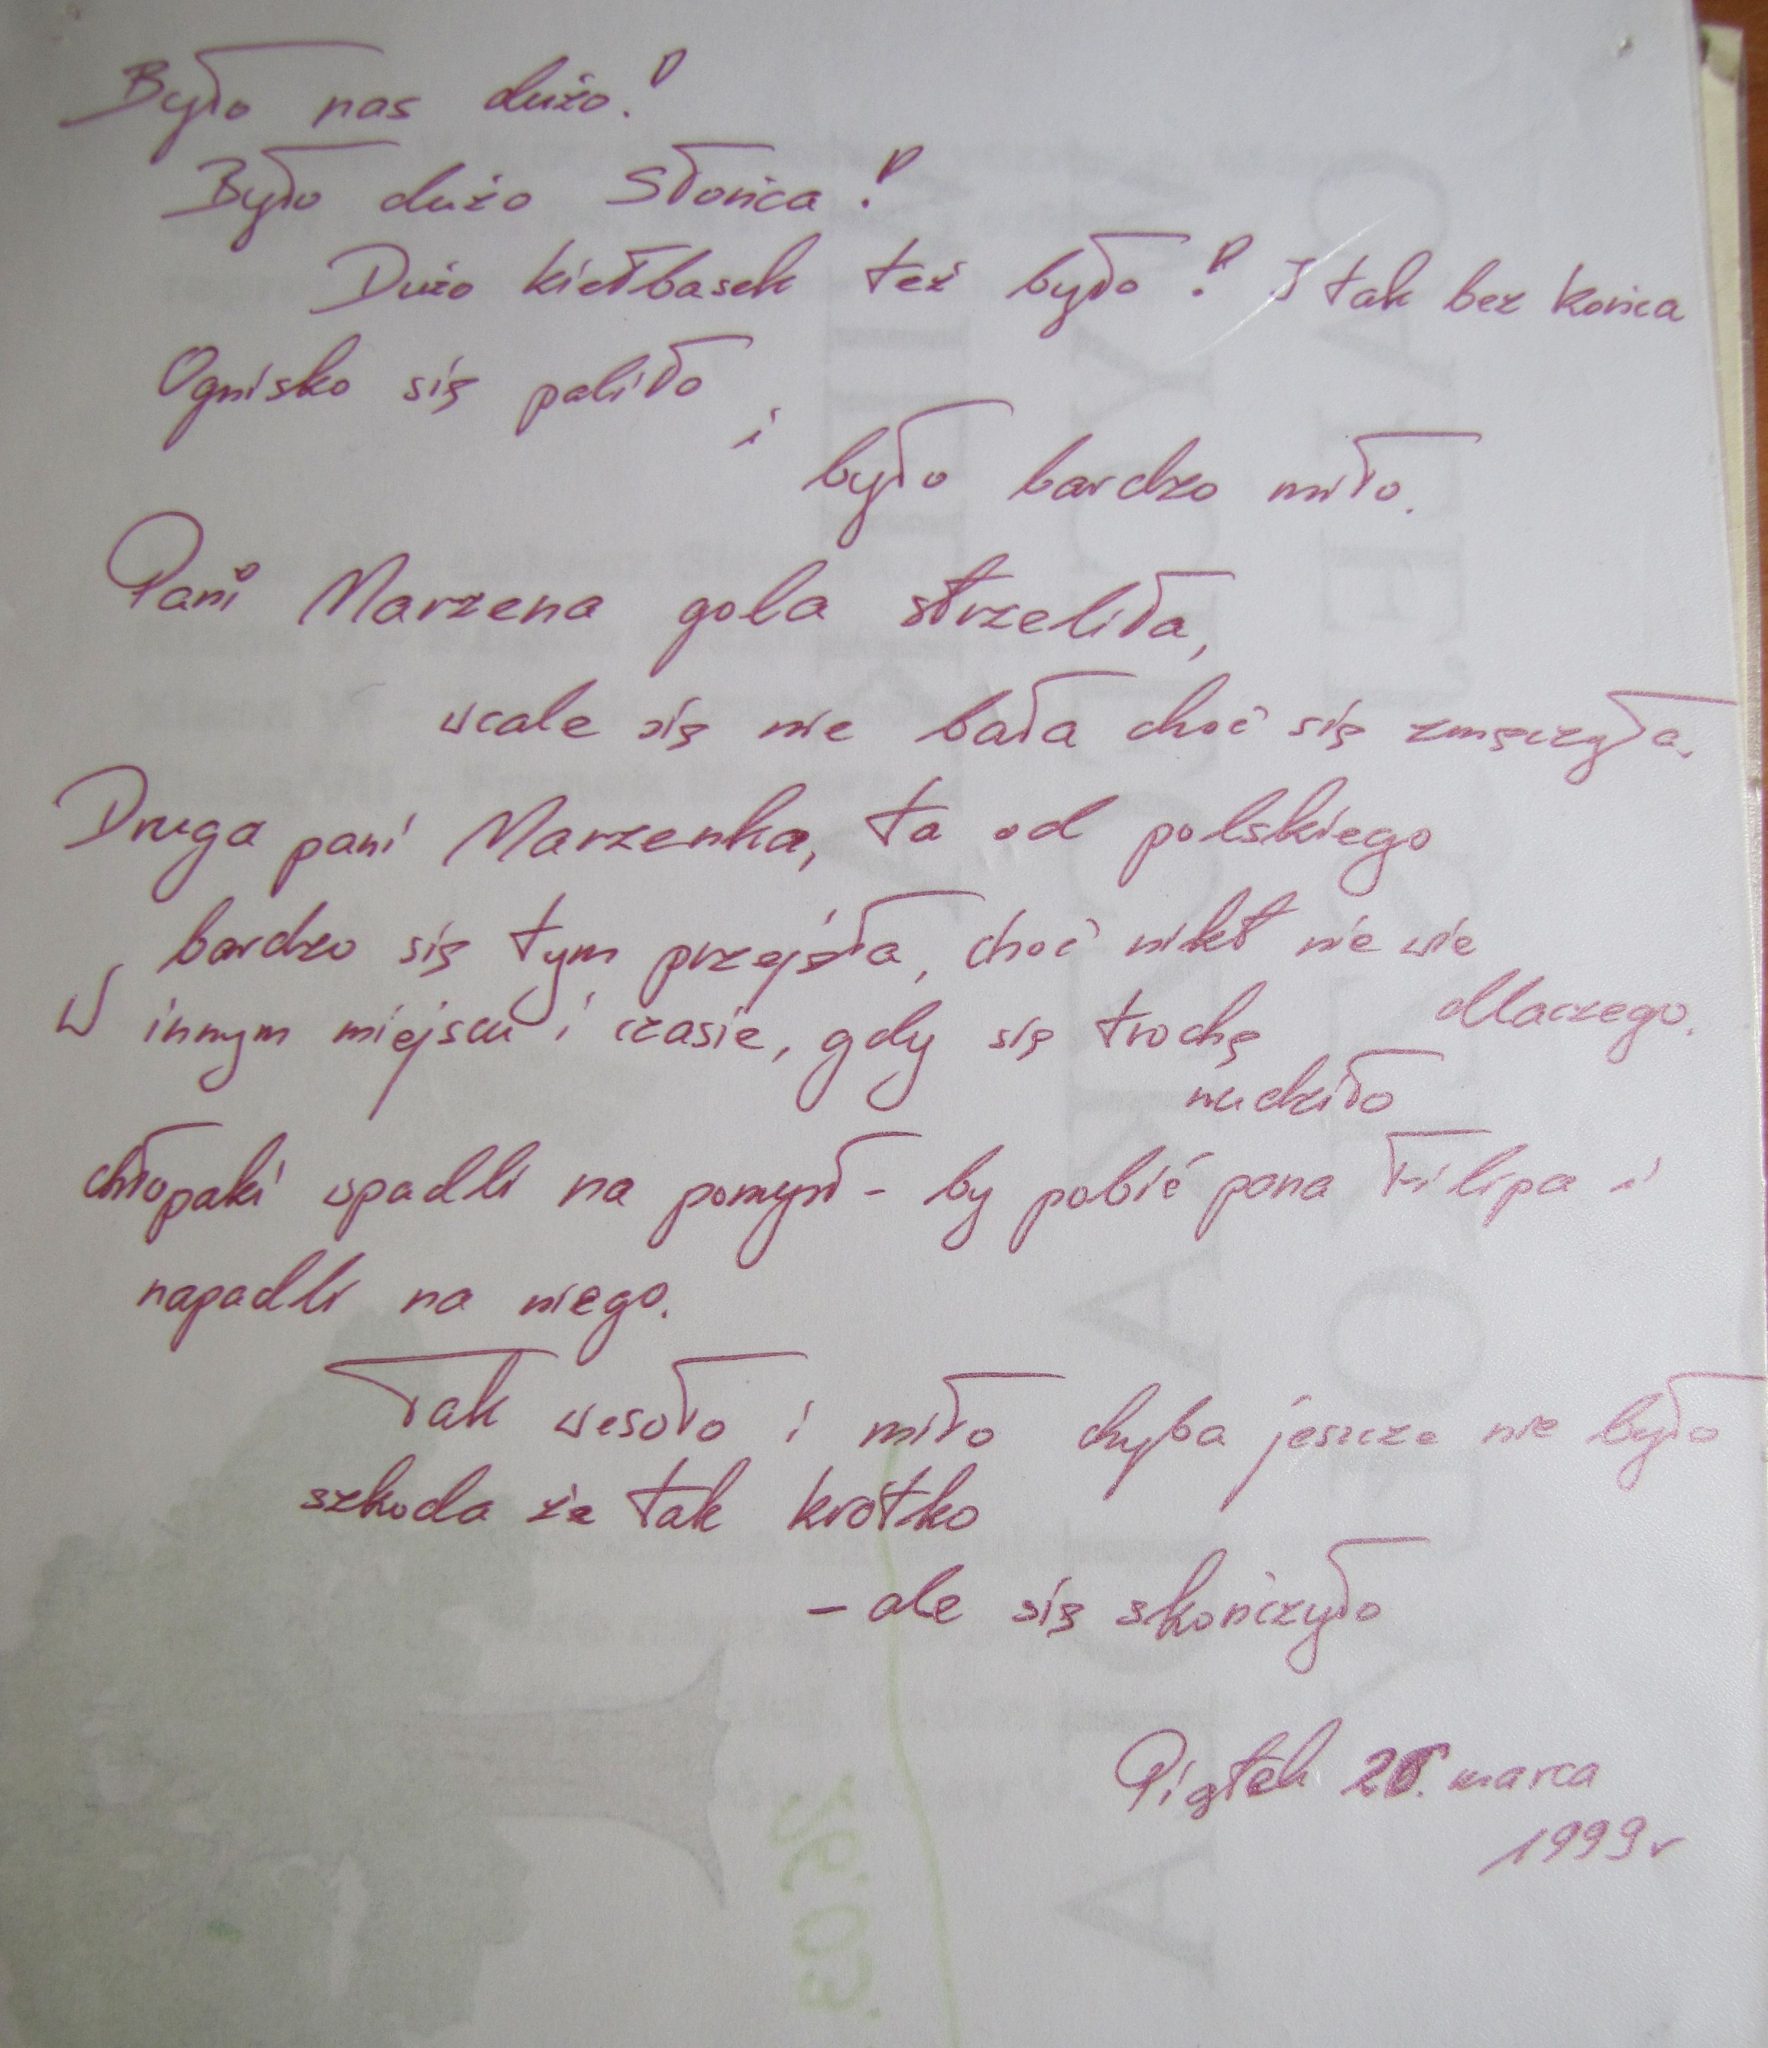 Było nas dużo!
Było dużo Słońca!
Dużo kiełbasek też było! I tak bez końca
Ognisko się paliło
i
było bardzo miło.
Pani Marzena gola strzeliła,
wcale się nie bała choć się zmęczyła.
Druga pani Marzenka, ta od polskiego
bardzo się tym przejęła, choć nikt nie wie
dlaczego.
W innym miejscu i czasie, gdy się trochę
nudziło
chłopaki wpadli na pomysł - by pobić pana Filipa i
napadli na niego.
Tak wesoło i miło chyba jeszcze nie było
szkoda że tak krótko
- ale się skończyło
Piątek 26. marca
1999r
29.03.